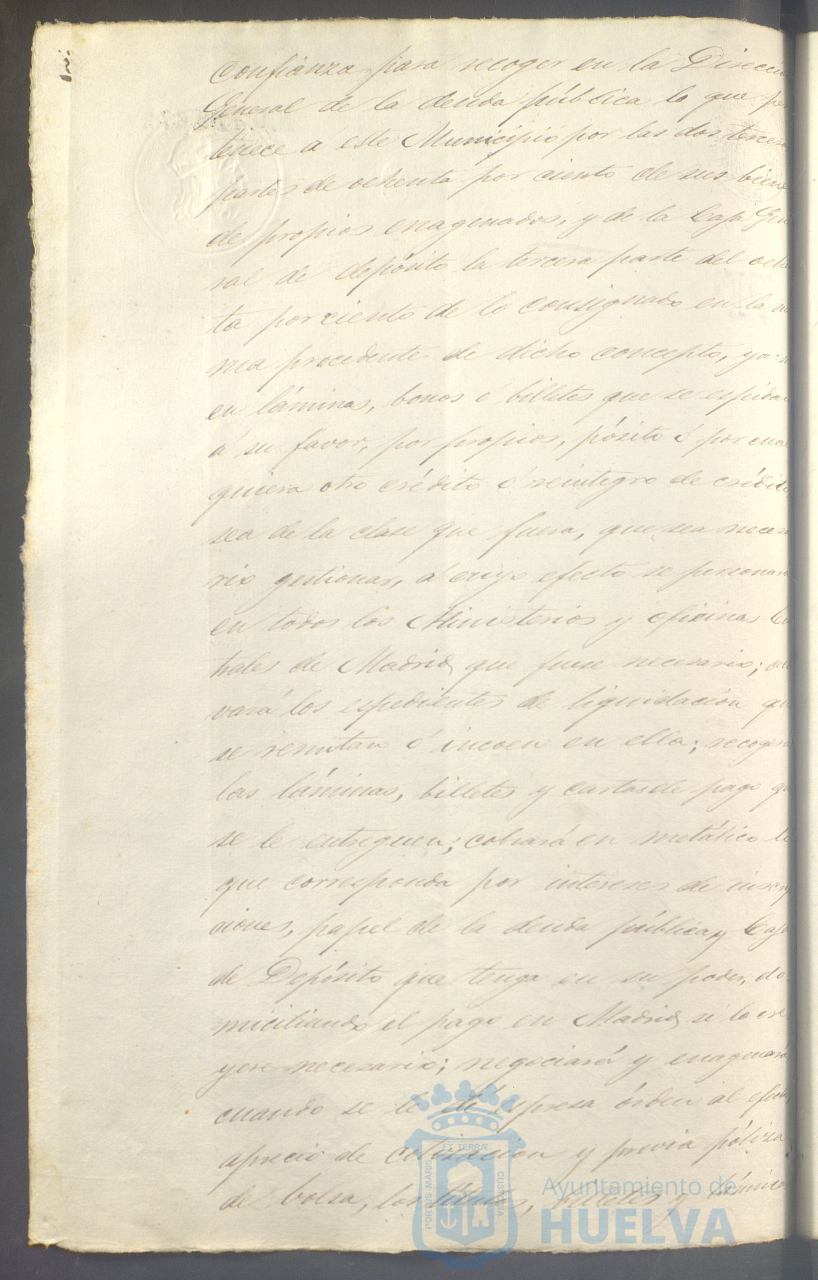 confianza para recoger en la Direcci
General de la deuda pública lo que per
tenece á este Municipio por las dos tercera
partes de ochenta por ciento de sus biene
de propios enagenados, y de la Caja Gen
ral de depósito la tercera parte del oche
ta por ciento de lo consignado en la m
ma procedente de dicho concepto, ya se
en láminas, bonos ó billetes que se espidan
á su favor, por propios, pósito ó por cua
quiera otro crédito ó reintegro de crédito
sea de la clase que fuera, que sea neces
rio gestionar, á cuyo efecto se personará
en todos los Ministerios y oficinas Ce
trales de Madrid que fuese necesario;
vará los espedientes de liquidación qu
se remitan ó incoen en ella; recoger
las láminas, billetes y cartas de pago q
se le entreguen; cobrará en metálico l
que corresponda por intereses de inscrip
ciones, papel de la deuda pública y Caja
de Depósito que tenga en su poder, do
miciliando el pago en Madrid si lo cre
yere necesario; negociará y enagenará
cuando se le dé espresa órden al efecto
á precio de cotización y previa póliza
de bolsa, los títulos, billetes y lámina
PORTUS MARIS ET TERRÆ CUSTODIA
Ayuntamiento de
HUELVA